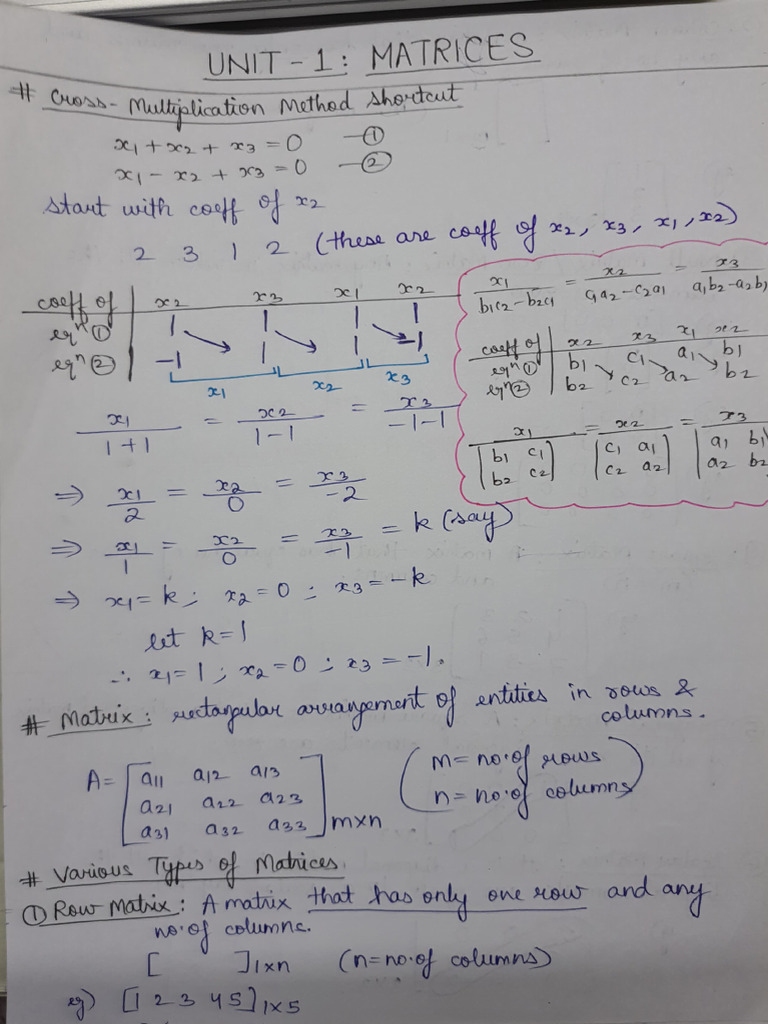 UNIT - 1: MATRICES
# Cross-Multiplication Method Shortcut
x1 + x2 + x3 = 0 —①
x1 - x2 + x3 = 0 —②
start with coeff of x2
2 3 1 2 (these are coeff of x2, x3, x1, x2)
coeff of | x2 x3 x1 x2
eqⁿ ① | 1 1 1 1
eqⁿ ② | -1 1 1 -1
x1 x2 x3
x1/(1+1) = x2/(1-1) = x3/(-1-1)
⇒ x1/2 = x2/0 = x3/-2
⇒ x1/1 = x2/0 = x3/-1 = k (say)
⇒ x1 = k ; x2 = 0 ; x3 = -k
let k=1
∴ x1 = 1 ; x2 = 0 ; x3 = -1.
x1/(b1c2-b2c1) = x2/(c1a2-c2a1) = x3/(a1b2-a2b1
coeff of | x2 x3 x1 x2
eqⁿ ① | b1 c1 a1 b1
eqⁿ ② | b2 c2 a2 b2
x1 = x2 = x3
|b1 c1| |c1 a1| |a1 b1|
|b2 c2| |c2 a2| |a2 b2
# Matrix: rectangular arrangement of entities in rows &
columns.
A = [a11 a12 a13
a21 a22 a23
a31 a32 a33] m×n
(m = no. of rows
n = no. of columns)
# Various Types of Matrices
① Row Matrix: A matrix that has only one row and any
no. of columns.
[ ]1×n (n = no. of columns)
eg) [1 2 3 4 5]1×5